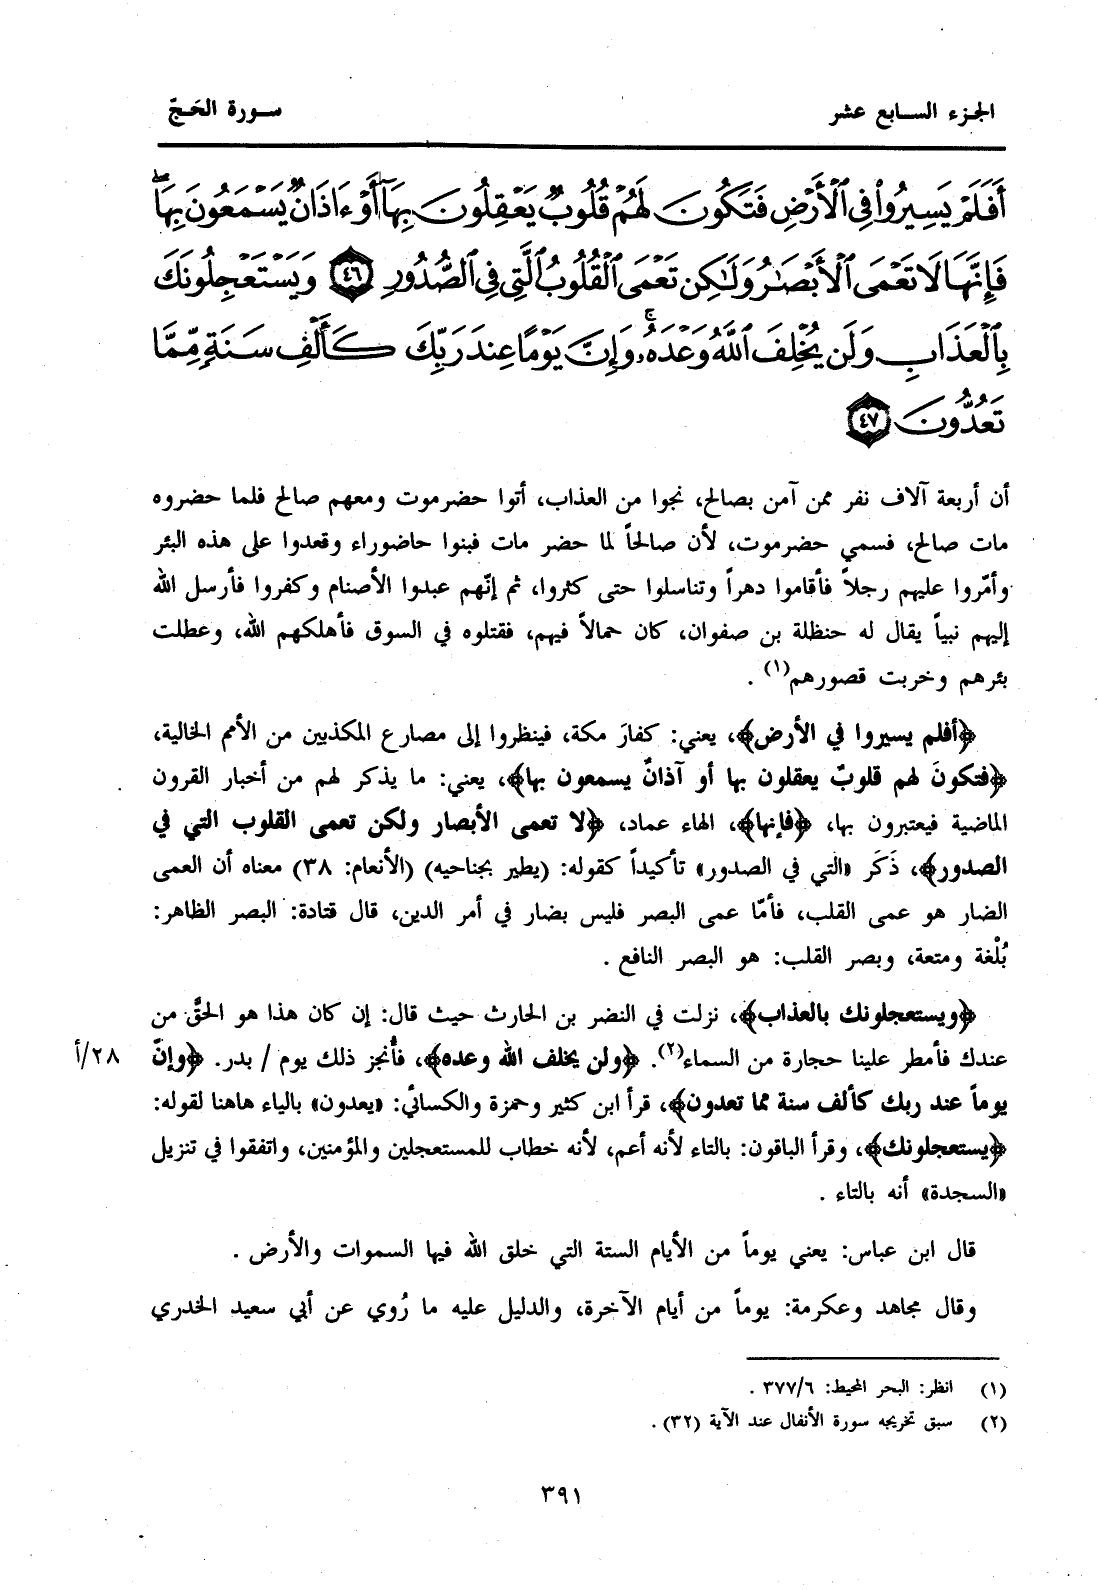 الجزء السابع عشر
سورة الحَجّ
أَفَلَمْ يَسِيرُوا۟ فِى ٱلْأَرْضِ فَتَكُونَ لَهُمْ قُلُوبٌ يَعْقِلُونَ بِهَآ أَوْ ءَاذَانٌ يَسْمَعُونَ بِهَا ۖ
فَإِنَّهَا لَا تَعْمَى ٱلْأَبْصَـٰرُ وَلَـٰكِن تَعْمَى ٱلْقُلُوبُ ٱلَّتِى فِى ٱلصُّدُورِ ٤٦ وَيَسْتَعْجِلُونَكَ
بِٱلْعَذَابِ وَلَن يُخْلِفَ ٱللَّهُ وَعْدَهُۥ ۚ وَإِنَّ يَوْمًا عِندَ رَبِّكَ كَأَلْفِ سَنَةٍ مِّمَّا
تَعُدُّونَ ٤٧
أن أربعة آلاف نفر ممن آمن بصالح، نجوا من العذاب، أتوا حضرموت ومعهم صالح فلما حضروه
مات صالح، فسمي حضرموت، لأن صالحاً لما حضر مات فبنوا حاضوراء وقعدوا على هذه البئر
وأمّروا عليهم رجلاً فأقاموا دهراً وتناسلوا حتى كثروا، ثم إنّهم عبدوا الأصنام وكفروا فأرسل الله
إليهم نبياً يقال له حنظلة بن صفوان، كان حمالاً فيهم، فقتلوه في السوق فأهلكهم الله، وعطلت
بئرهم وخربت قصورهم(١) .
﴿أفلم يسيروا في الأرض﴾، يعني: كفارَ مكة، فينظروا إلى مصارع المكذبين من الأمم الخالية،
﴿فتكونَ لهم قلوبٌ يعقلون بها أو آذانٌ يسمعون بها﴾، يعني: ما يذكر لهم من أخبار القرون
الماضية فيعتبرون بها، ﴿فإنها﴾، الهاء عماد، ﴿لا تعمى الأبصار ولكن تعمى القلوب التي في
الصدور﴾، ذَكَر «التي في الصدور» تأكيداً كقوله: (يطير بجناحيه) (الأنعام: ٣٨) معناه أن العمى
الضار هو عمى القلب، فأمّا عمى البصر فليس بضار في أمر الدين، قال قتادة: البصر الظاهر:
بُلْغة ومتعة، وبصر القلب: هو البصر النافع .
﴿ويستعجلونك بالعذاب﴾، نزلت في النضر بن الحارث حيث قال: إن كان هذا هو الحقَّ من
عندك فأمطر علينا حجارة من السماء(٢). ﴿ولن يخلف الله وعده﴾، فأُنجز ذلك يوم / بدر. ﴿وإنّ
٢٨/أ
يوماً عند ربك كألف سنة مما تعدون﴾، قرأ ابن كثير وحمزة والكسائي: «يعدون» بالياء هاهنا لقوله:
﴿يستعجلونك﴾، وقرأ الباقون: بالتاء لأنه أعم، لأنه خطاب للمستعجلين والمؤمنين، واتفقوا في تنزيل
«السجدة» أنه بالتاء .
قال ابن عباس: يعني يوماً من الأيام الستة التي خلق الله فيها السموات والأرض .
وقال مجاهد وعكرمة: يوماً من أيام الآخرة، والدليل عليه ما رُوي عن أبي سعيد الخدري
(١) انظر: البحر المحيط: ٣٧٧/٦ .
(٢) سبق تخريجه سورة الأنفال عند الآية (٣٢) .
٣٩١